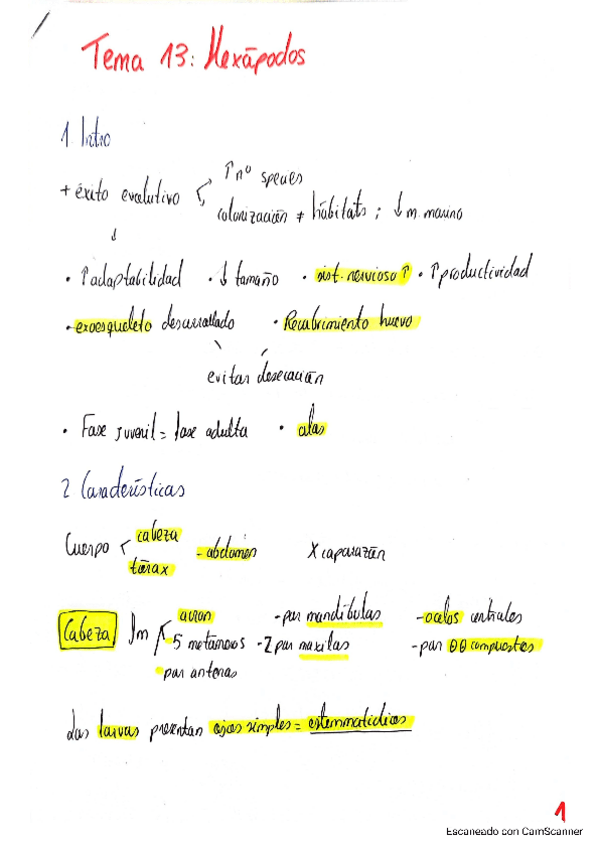 Tema 13: Hexápodos
1 Intro
+ éxito evolutivo < ↑ nº species
colonización + hábitats ; ↓ m. marino
↓
· ↑ adaptabilidad · ↓ tamaño · sist. nervioso ↑ · ↑ productividad
· exoesqueleto desarrollado · Recubrimiento huevo
evitar desecación
· Fase juvenil = fase adulta · alas
2 Características
Cuerpo < cabeza
tórax - abdomen X caparazón
Cabeza acron - par mandíbulas - ocelos centrales
5 metámeros - 2 par maxilas - par OO compuestos
par antenas
Las larvas presentan ojos simples = estemmatidios
1
Escaneado con CamScanner